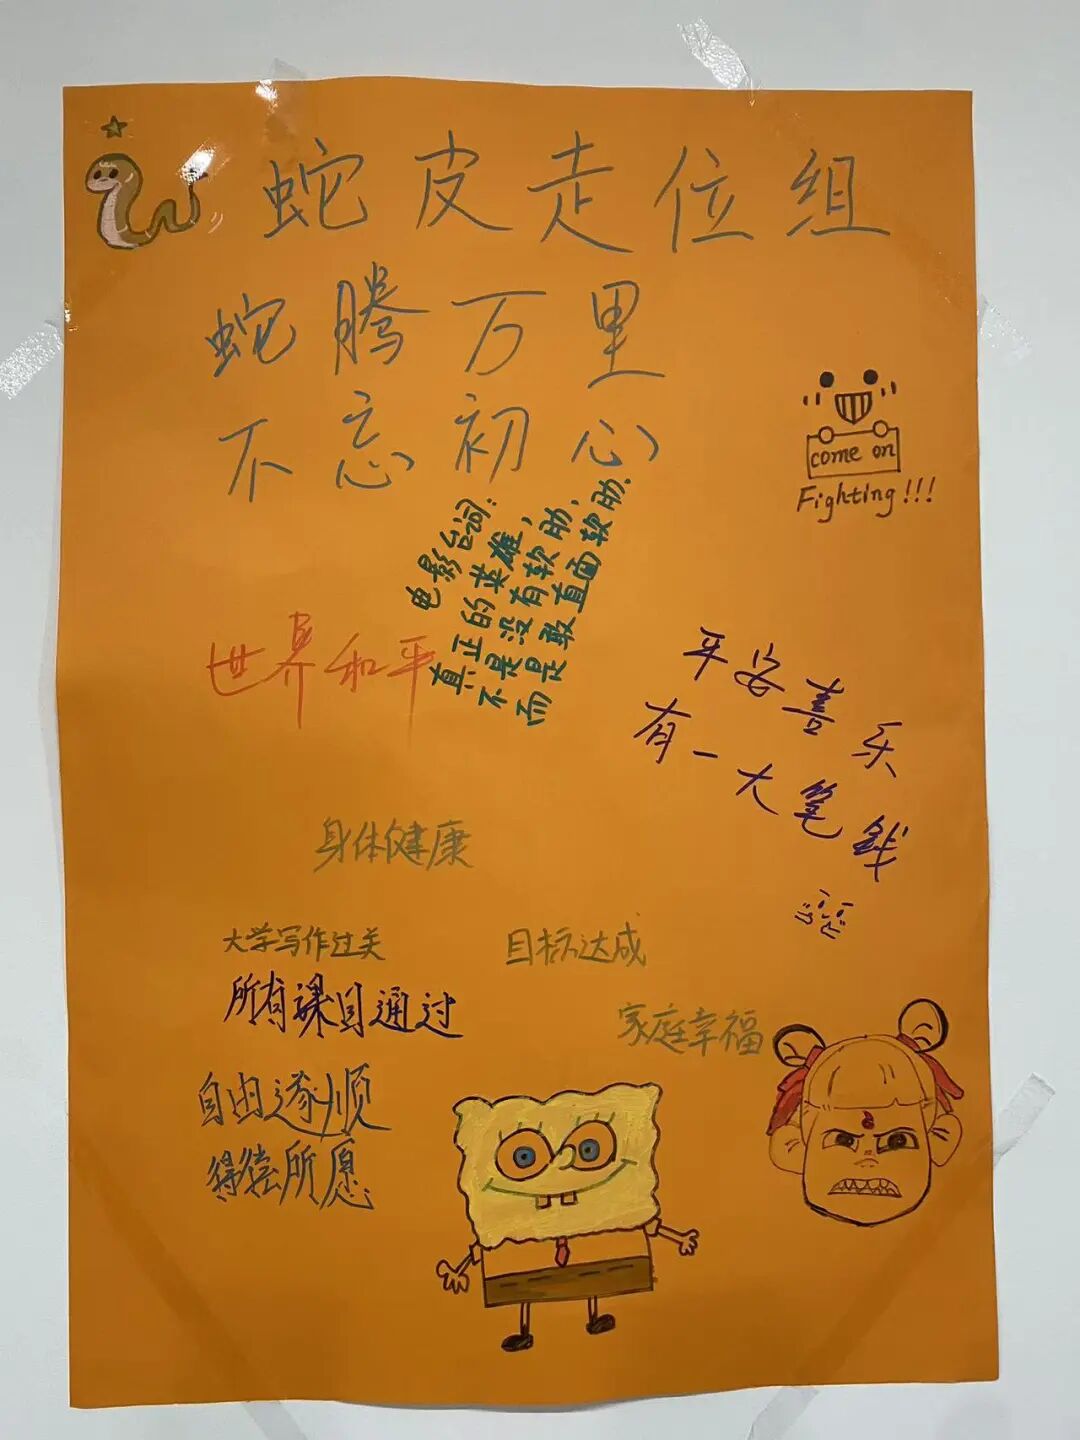 蛇皮走位组
蛇腾万里
不忘初心
come on
Fighting!!!
电影台词:
真正的英雄,
不是没有软肋,
而是敢直面软肋.
世界和平
平安喜乐
有一大笔钱
身体健康
大学写作过关
所有课目通过
目标达成
家庭幸福
自由遂顺
得偿所愿